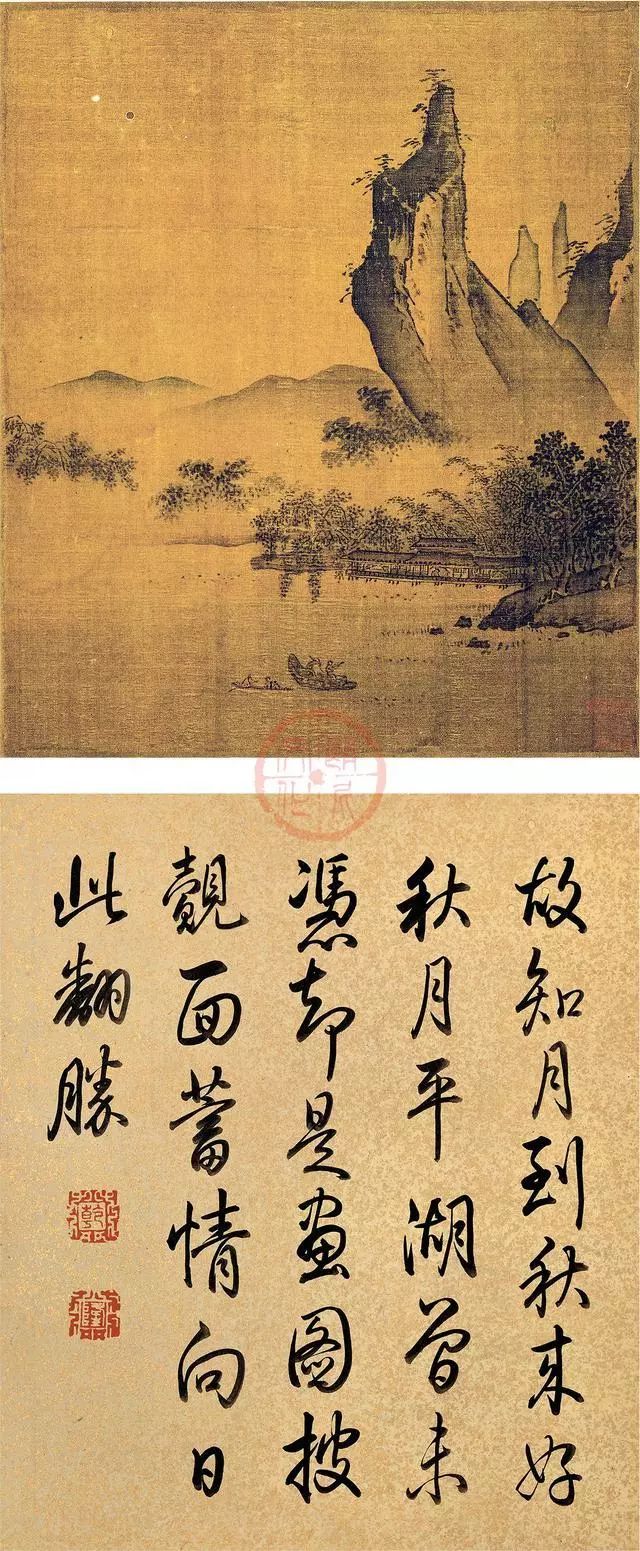 故知月到秋來好
秋月平湖曾未
憑却是畫圖披
覿面蓄情向日
此翻勝
乾
隆